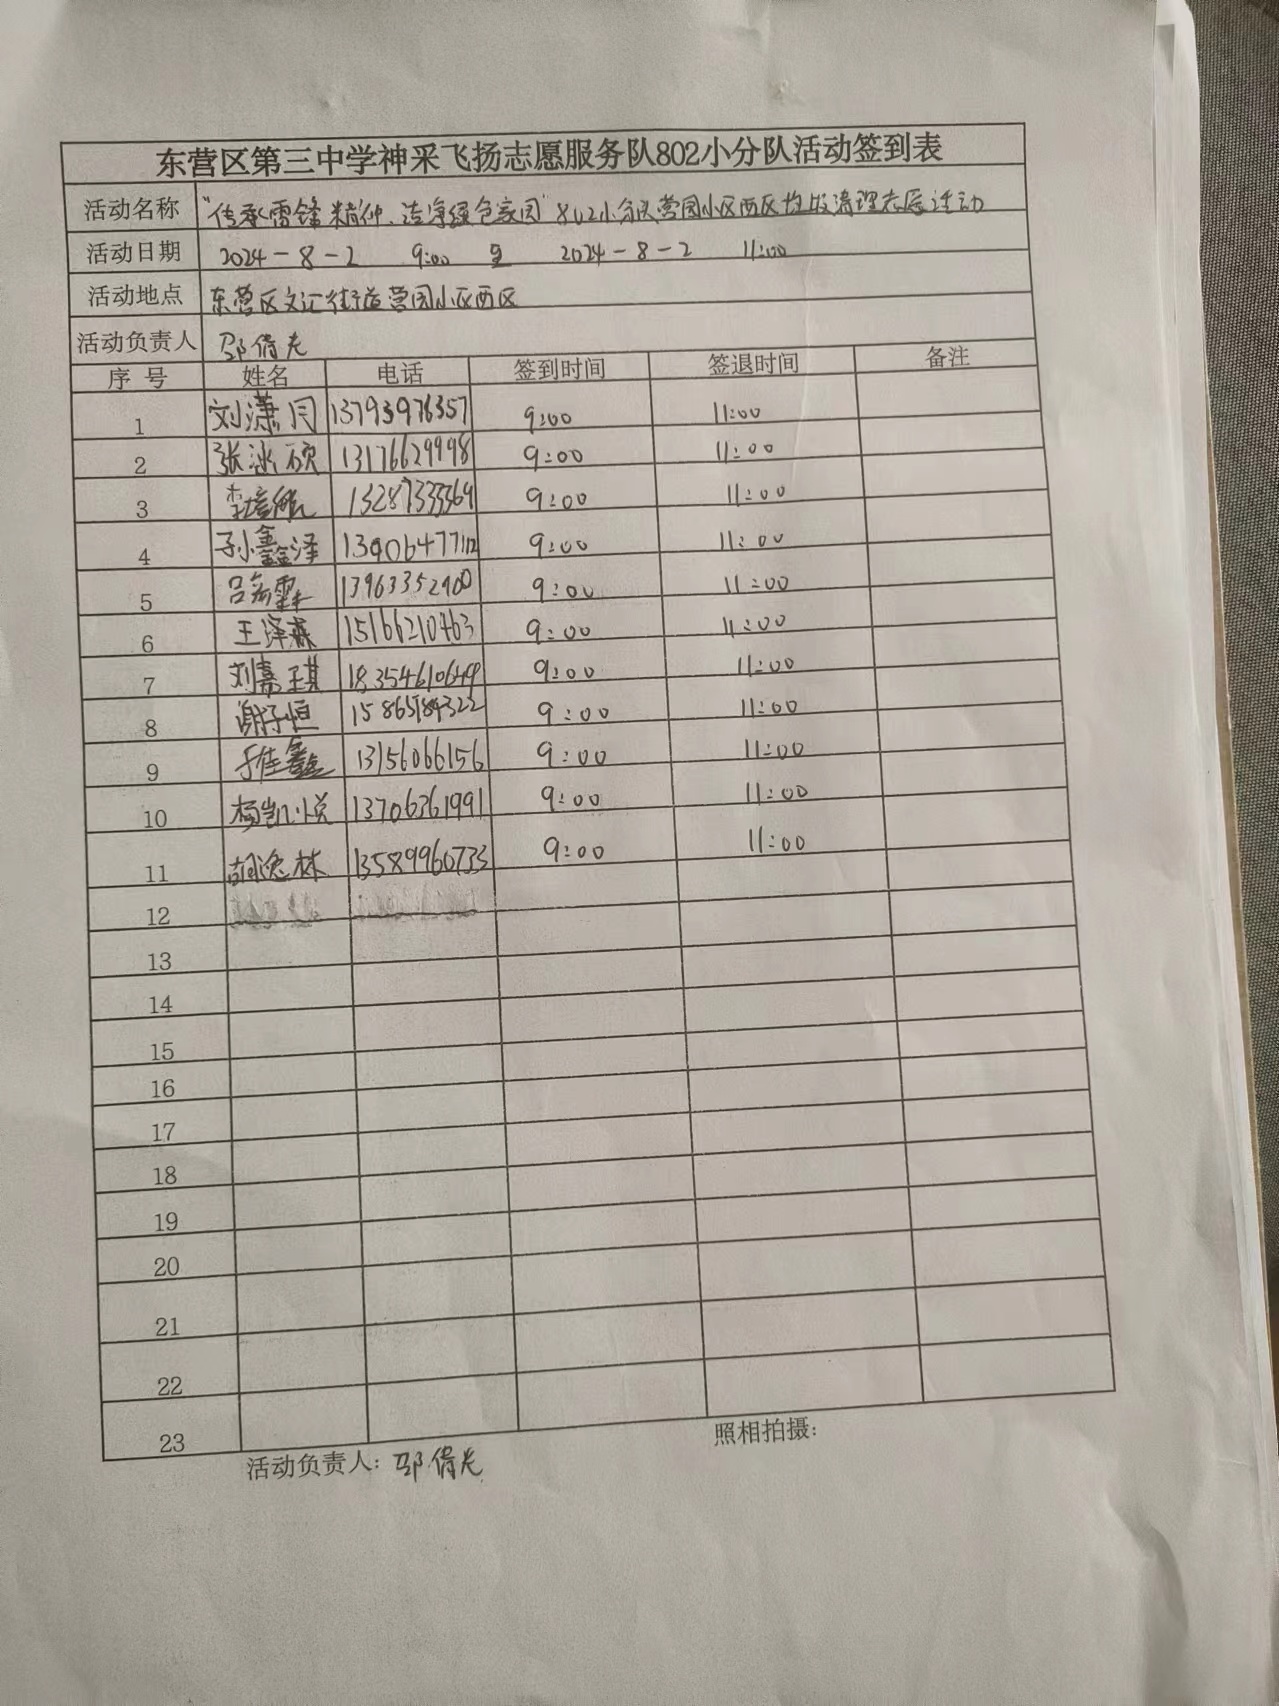 东营区第三中学神采飞扬志愿服务队802小分队活动签到表
活动名称 "传承雷锋精神、洁净绿色家园"802小分队营园小区西区垃圾清理志愿活动
活动日期 2024-8-2 9:00 至 2024-8-2 11:00
活动地点 东营区文汇街道营园小区西区
活动负责人 邵倩尤
序号 姓名 电话 签到时间 签退时间 备注
1 刘潇 13793976357 9:00 11:00
2 张冰硕 13176629998 9:00 11:00
3 李 13287333369 9:00 11:00
4 孙鑫泽 13906477112 9:00 11:00
5 吕 霖 13963352900 9:00 11:00
6 王泽森 15166210763 9:00 11:00
7 刘嘉琪 18354610649 9:00 11:00
8 谢子恒 15865184322 9:00 11:00
9 佳鑫 13156066156 9:00 11:00
10 杨凯悦 13706361991 9:00 11:00
11 胡逸林 13589960733 9:00 11:00
12
13
14
15
16
17
18
19
20
21
22
23
活动负责人: 邵倩尤 照相拍摄: